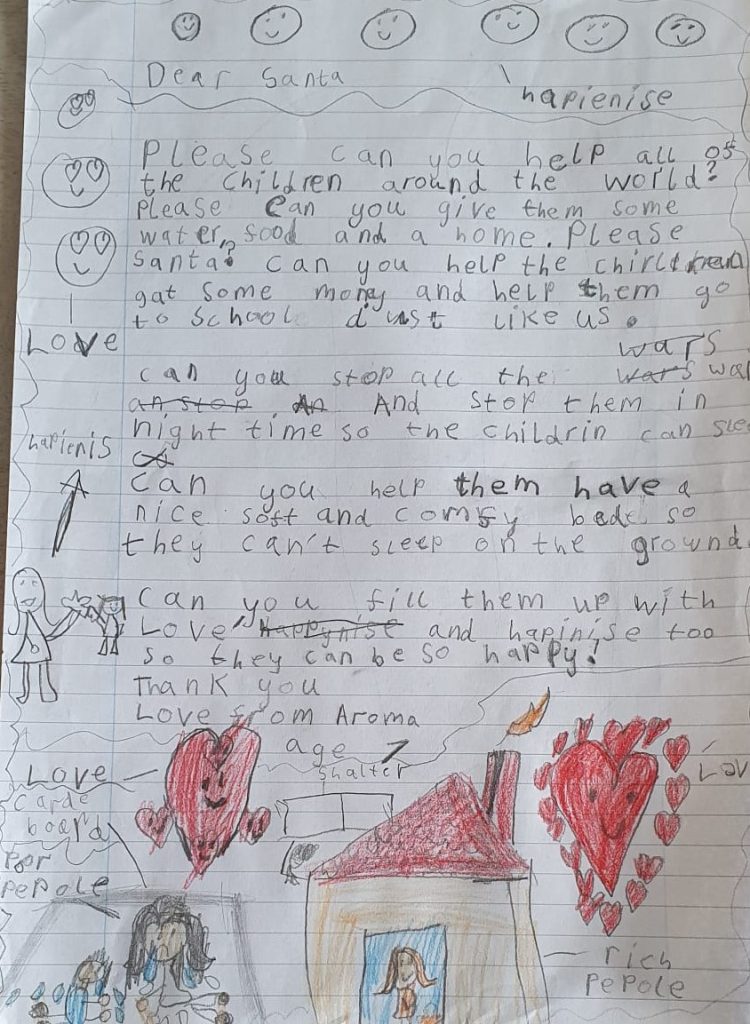 Dear Santa
hapienise
Please can you help all of
the children around the world?
Please can you give them some
water, food and a home. Please
Santa? can you help the chirldrean
gat some money and help them go
to school dust like us.
Love
wars
can you stop all the wars war
an stop An And stop them in
night time so the childrin can slee
hapienis
Can you help them have a
nice soft and comfy bede so
they can't sleep on the grownd.
Can you fill them up with
Love Happynise and hapinise too
so they can be so happy!
Thank you
Love from Aroma
age 7
Love
Shalter
Lov
carde
board
Por
Pepole
rich
Pepole